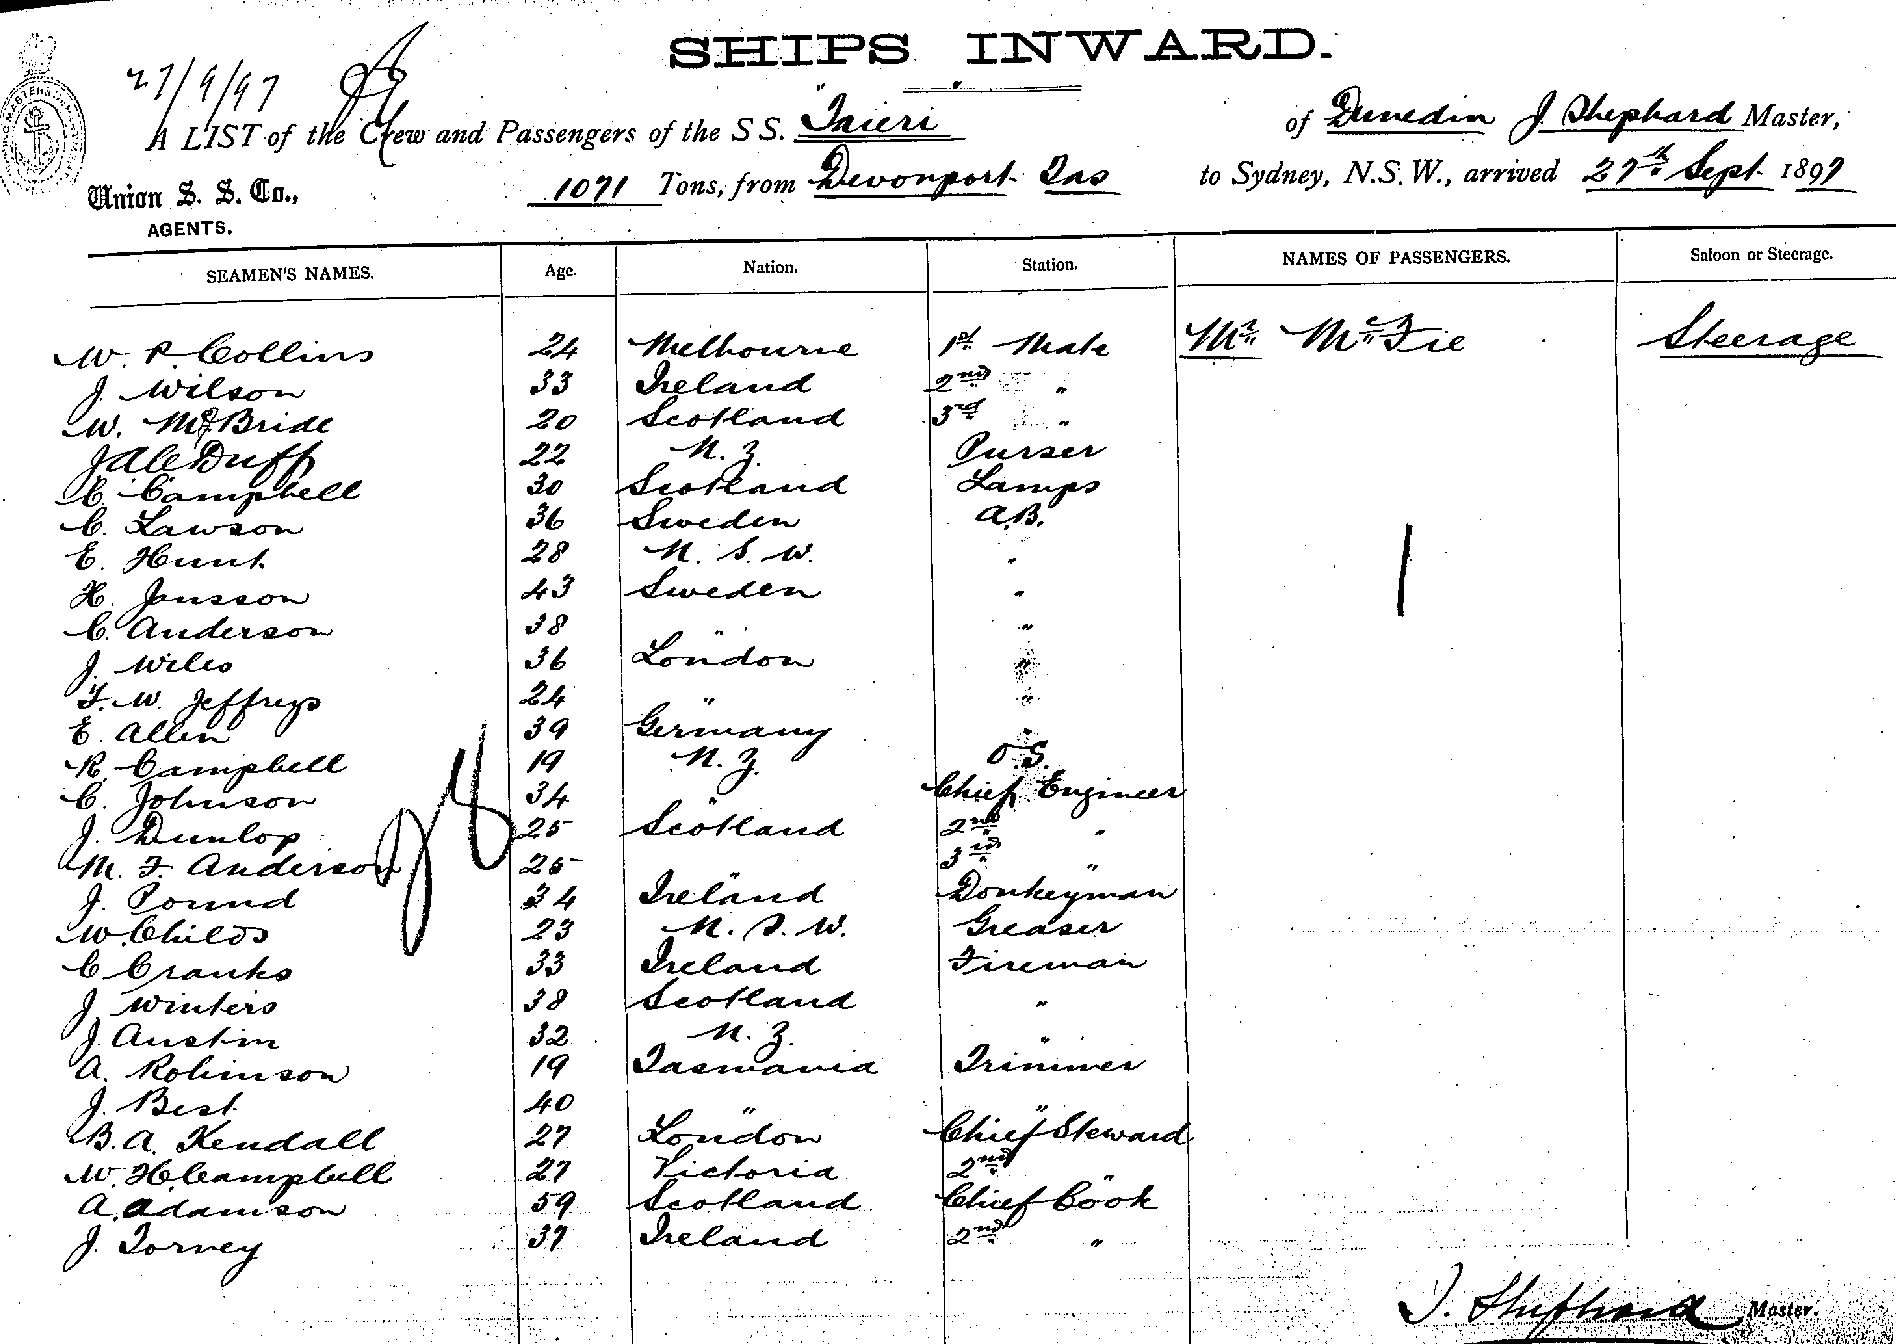 SHIPS INWARD.
27/9/97
A LIST of the Crew and Passengers of the S S. Taieri of Dunedin J Shephard Master,
Union S. S. Co., 1071 Tons, from Devonport Tas to Sydney, N.S.W., arrived 27th Sept. 1897
AGENTS.
SEAMEN'S NAMES. Age. Nation. Station. NAMES OF PASSENGERS. Saloon or Steerage.
W. P. Collins 24 Melbourne 1st Mate Mr McFie Steerage
J. Wilson 33 Ireland 2nd "
W. McBride 20 Scotland 3rd "
Duff 22 N. Z. Purser
C. Campbell 30 Scotland Lamps
C. Lawson 36 Sweden A.B.
E. Hunt 28 N. S. W. "
H. Jansson 43 Sweden "
C. Anderson 38 " "
J. Wiles 36 London "
F. W. Jeffreys 24 " "
E. Allen 39 Germany "
R. Campbell 19 N. Z. O.S.
C. Johnson 34 " Chief Engineer
J. Dunlop 25 Scotland 2nd "
M. F. Anderson 25 " 3rd "
J. Pound 34 Ireland Donkeyman
W. Childs 23 N. S. W. Greaser
C Cranks 33 Ireland Fireman
J. Winters 38 Scotland "
J. Austin 32 N. Z. "
A. Robinson 19 Tasmania Trimmer
J. Best 40 " "
B. A. Kendall 27 London Chief Steward
W. H. Campbell 27 Victoria 2nd "
A. Adamson 59 Scotland Chief Cook
J. Torney 37 Ireland 2nd "
28
1
J. Shephard Master.